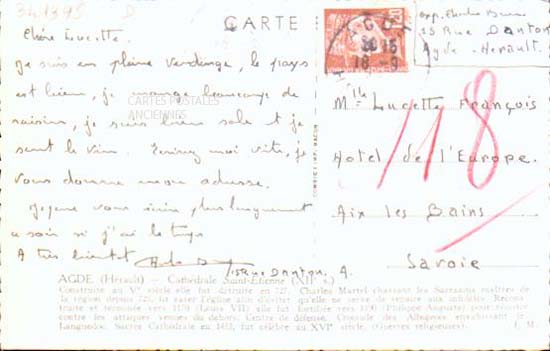 341395
CARTE
Chère Lucette.
Je suis en pleine vendange, le pays
est bien, je mange beaucoup de
raisins, je suis bien sale et je
sent le vin. Ecrivez moi vite, je
vous donne mon adresse.
vous plus longuement
ce soir si j'ai le temps
A très bientôt
15 Rue Danton A.
CARTES POSTALES
ANCIENNES
AGDE
16
18-9
exp. Charles
35 Rue Danton
Agde - Hérault.
Mlle Lucette François
Hotel de l'Europe.
Aix les Bains
Savoie
118
AGDE (Hérault) — Cathédrale Saint-Étienne (XIIe s.)
Construite au Ve siècle, elle fut détruite en 727. Charles Martel chassant les Sarrasins maîtres de
la région depuis 720, fit raser l'église afin d'éviter qu'elle ne serve de repaire aux infidèles. Recons-
truite et terminée vers 1150 (Louis VII) elle fut fortifiée vers 1190 (Philippe Auguste) pour résister
contre les attaques venues du dehors. Centre de défense. Croisade des Albigeois ravageant le
Languedoc. Sacrée Cathédrale en 1453, fut célèbre au XVIe siècle. (Guerres religieuses).